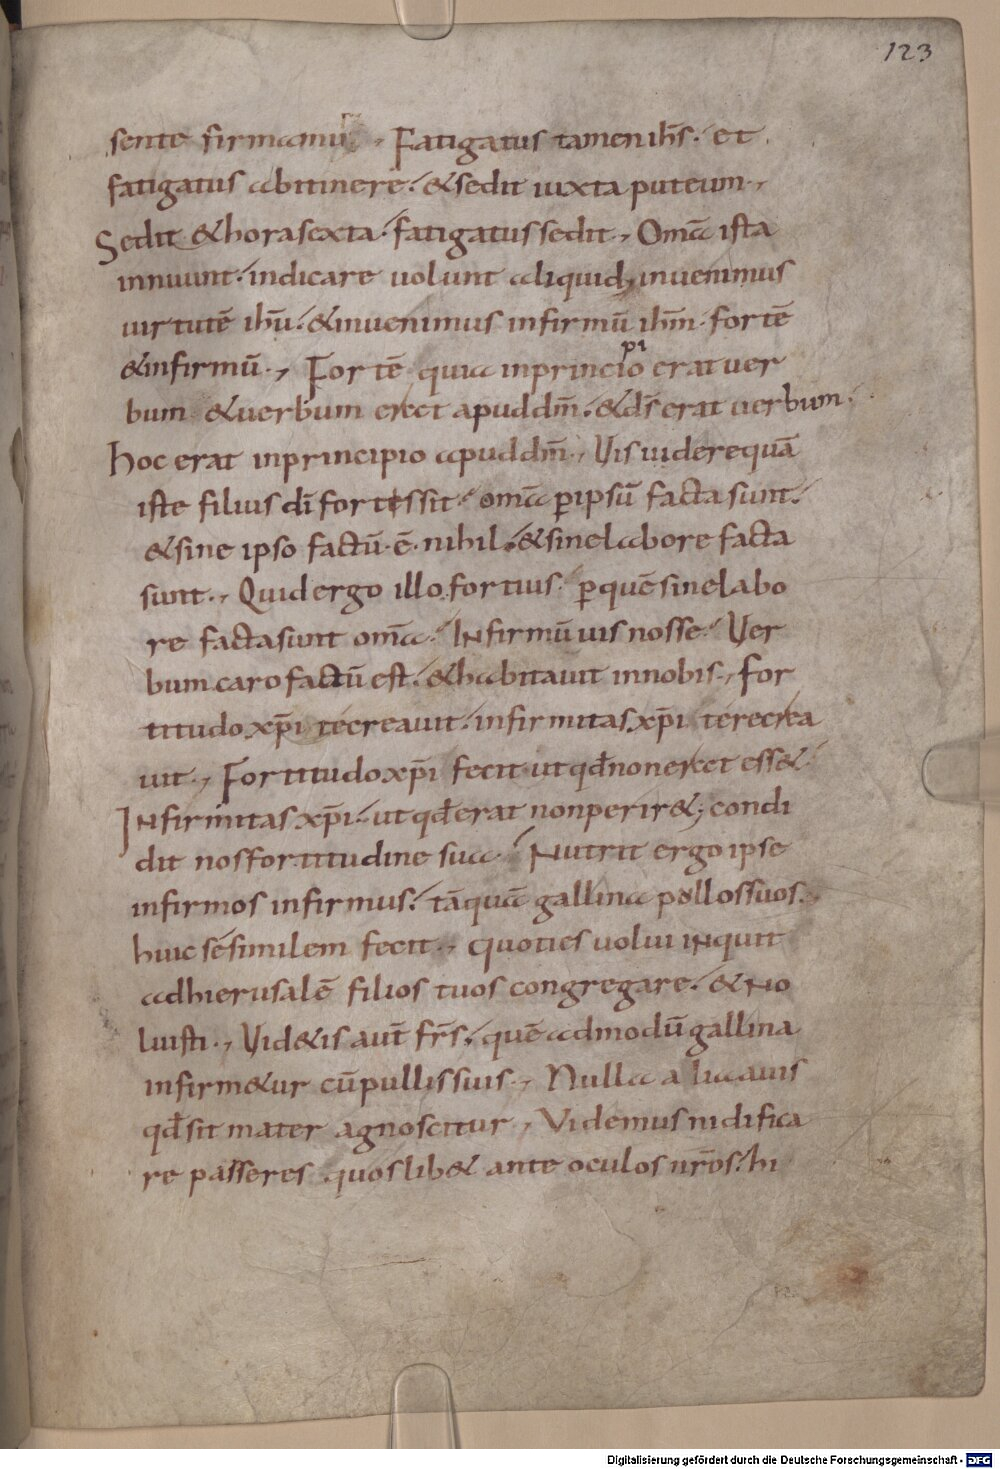 123
sente firmamur., Fatigatus tamen ihs̄. et
fatigatus abitinere. & sedit iuxta puteum.,
Sedit & hora sexta. fatigatus sedit., Om̄a ista
innuunt. indicare uolunt aliquid, inuenimus
uirtutē ihū. & inuenimus infirmū ihm̄. fortē
& infirmū., Fortē quia inprincipio erat uer
bum & uerbum erat apud dm̄. & ds̄ erat uerbum.
Hoc erat inprincipio apud dm̄., Vis uidere quā
iste filius dī fortis sit. om̄a ꝑipsū facta sunt.
& sine ipso factū .ē. nihil. & sine labore facta
sunt., Quid ergo illo fortius. ꝑ quē sine labo
re facta sunt om̄a. Infirmū uis nosse. Ver
bum caro factū est. & habitauit innobis., For
titudo xp̄i te creauit. infirmitas xp̄i te recrea
uit., Fortitudo xp̄i fecit ut qđ non erat ess&.
Infirmitas xp̄i. ut qđ erat non perir&; condi
dit nos fortitudine sua. Nutrit ergo ipse
infirmos infirmus. tāquā gallina pullos suos.,
huic sē similem fecit., quoties uolui inquit
adhierusalē filios tuos congregare. & no
luisti., Vid&is aut̄ fr̄s. quē admodū gallina
infirm&ur cū pullis suis., Nulla alia auis
qđ sit mater agnoscitur., Videmus nidifica
re passeres quoslib& ante oculos nr̄os. hi
Digitalisierung gefördert durch die Deutsche Forschungsgemeinschaft - DFG